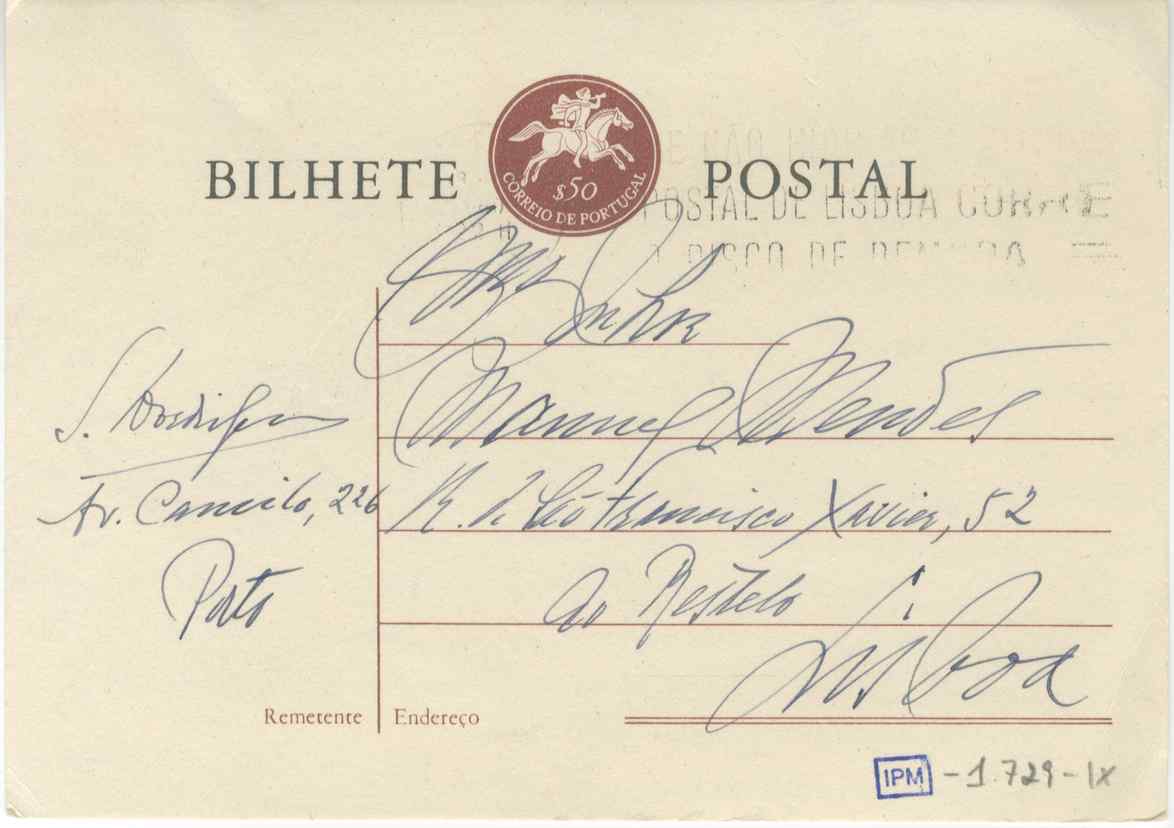 BILHETE POSTAL
$50
CORREIO DE PORTUGAL
E NÃO
POSTAL DE LISBOA CORRE
RISCO DE DEMORA
Exmo Senhor
Manuel Mendes
R. de São Francisco Xavier, 52
ao Restelo
Lisboa
S. Rodrigues
Av. Camilo, 226
Porto
Remetente
Endereço
IPM -1.729-IX